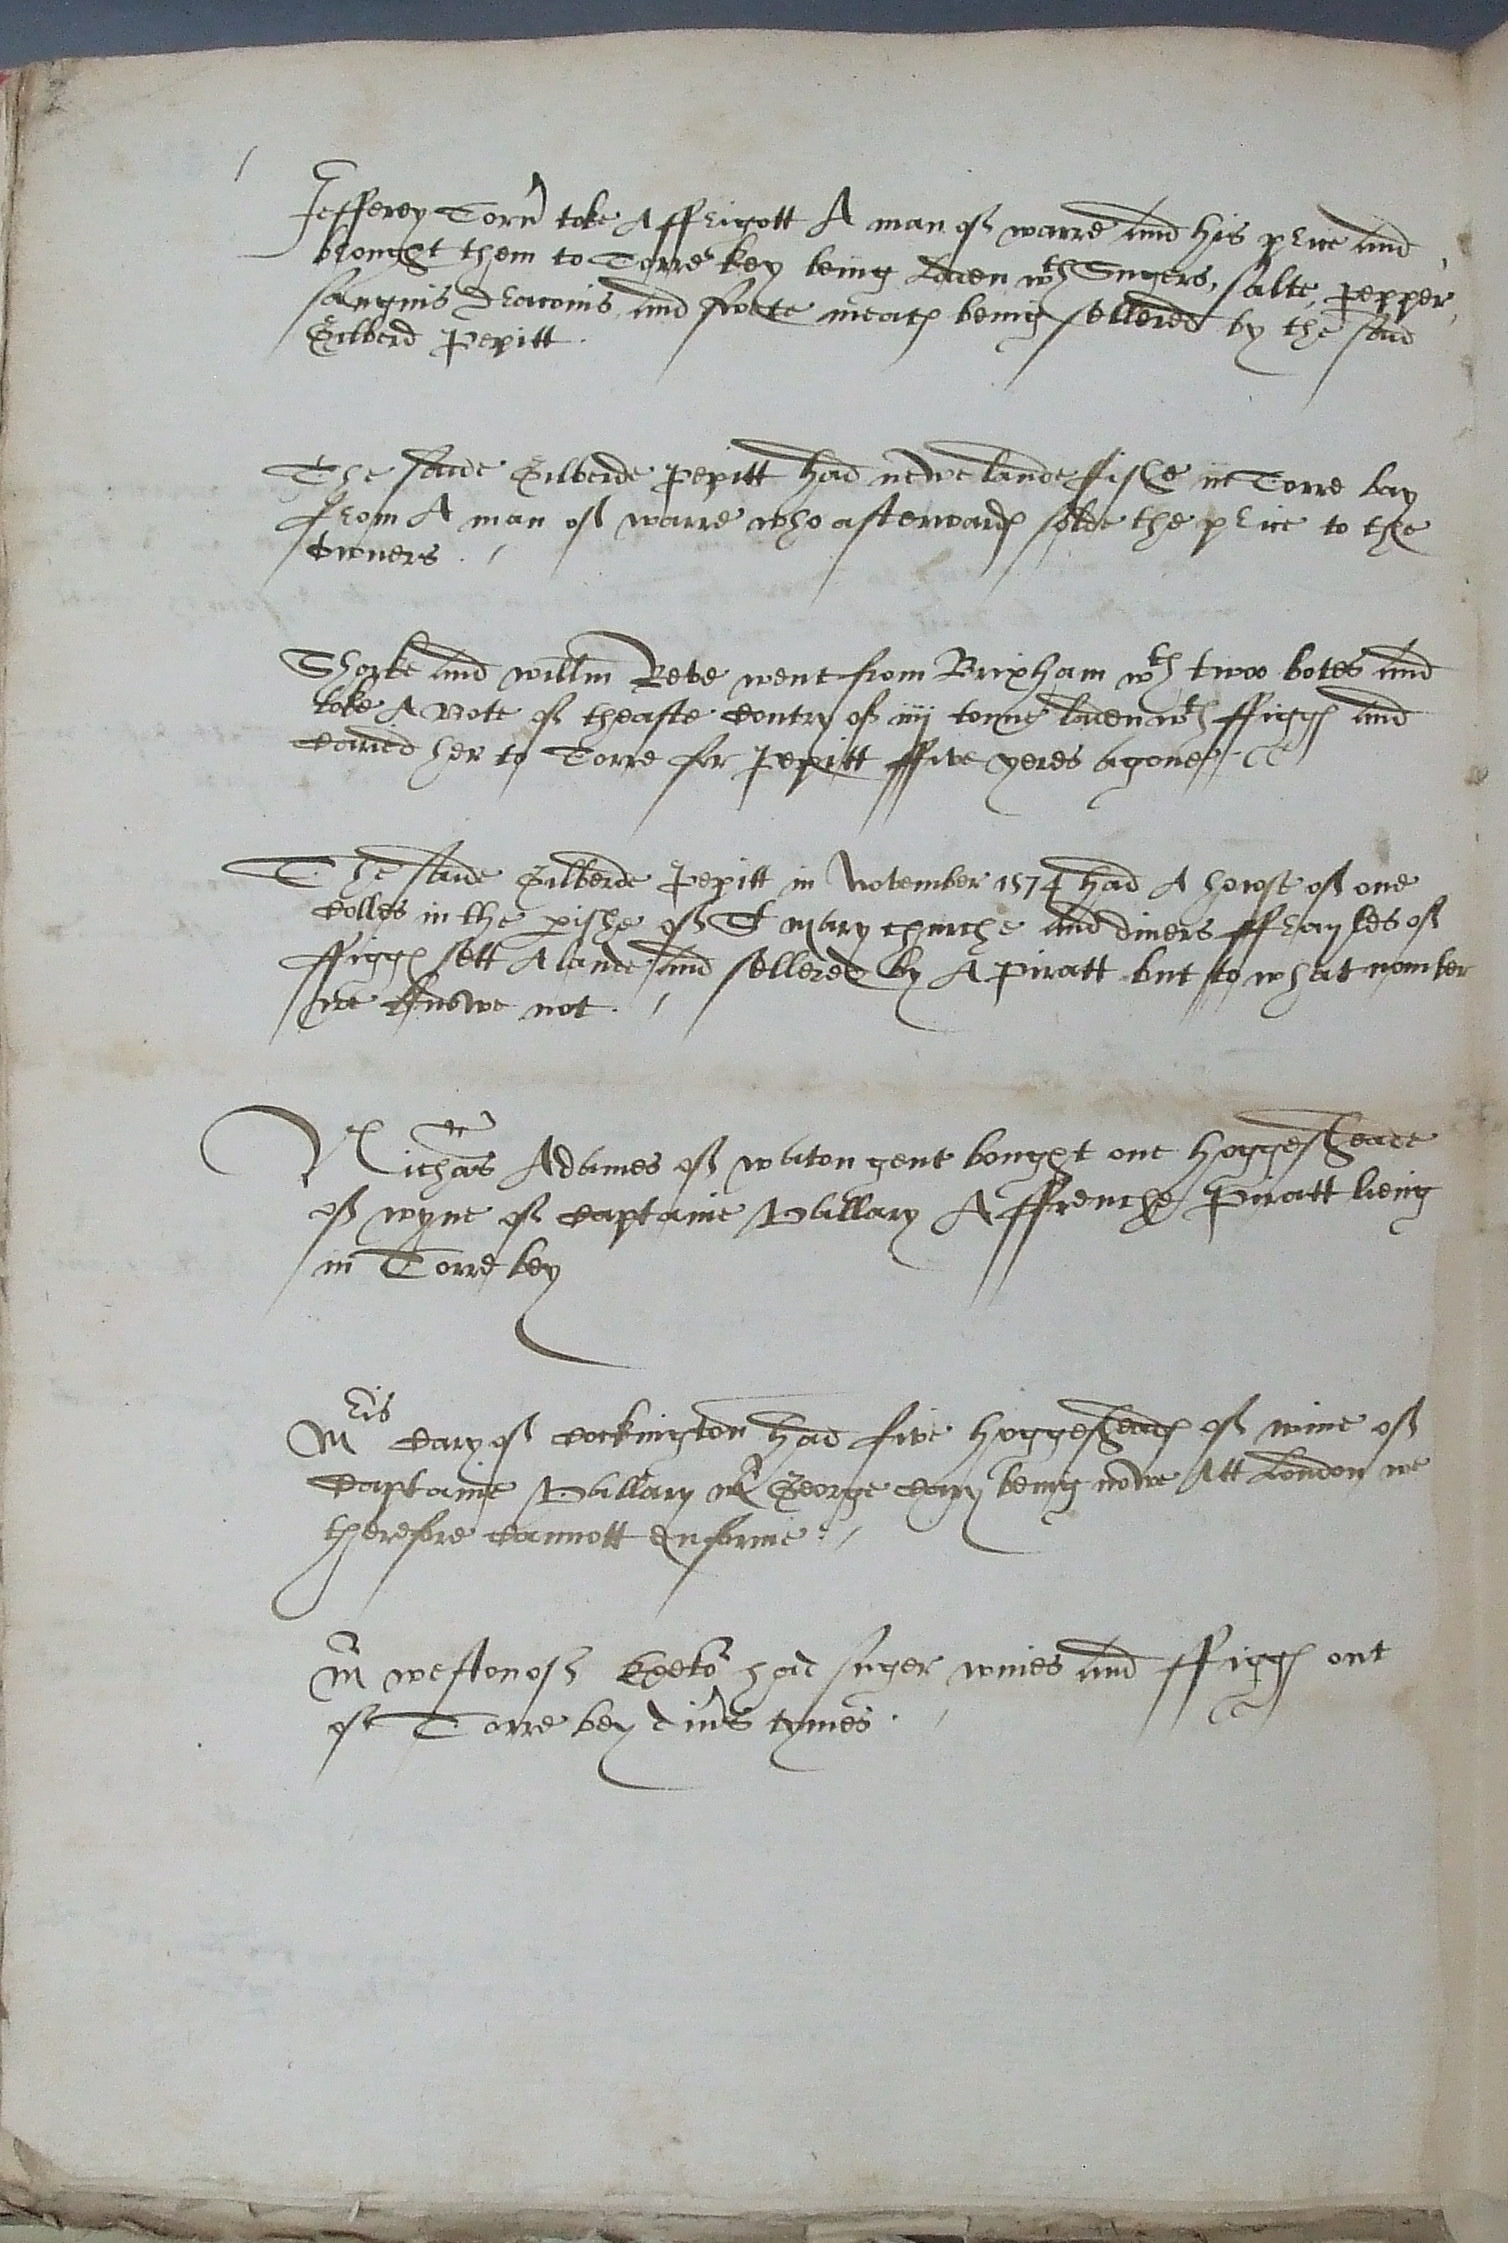 Jefferey Torn toke A ffrigott A man of warre and his price and
brought them to Torre key being laden wth Sugers, salte, pepper,
sanguis draconis, and swete meates being sellered by the said
Gilberd Pepitt.
The saide Gilberde Pepitt had newe lande fishe in Torre bay
from A man of warre who afterwardes solde the price to the
Owners.
Shorte and willm Reve went from Brixham wth twoo botes and
toke A Bote of theaste contry of iiij tonne laden wth ffigges and
caried her to Torre for Pepitt ffive yeres agone
The saide Gilberde Pepitt in November 1574 had A howse of one
Colles in the pishe of St Mary churche and divers ffrayles of
ffigges sett A lande and sellered by A Piratt but to what nomber
we knowe not.
Nichas Adames of waton gent bought one hoggesheade
of wyne of Captaine Vallary A ffrenche Piratt lieng
in Torre bey
Mris Cary of Cockington had five hoggesheades of wine of
Captaine Vallary Mr George Cary being nowe Att London we
therefore cannott Enforme.
Mr weston of had suger wines and ffigges out
of Torre bey divs tymes.